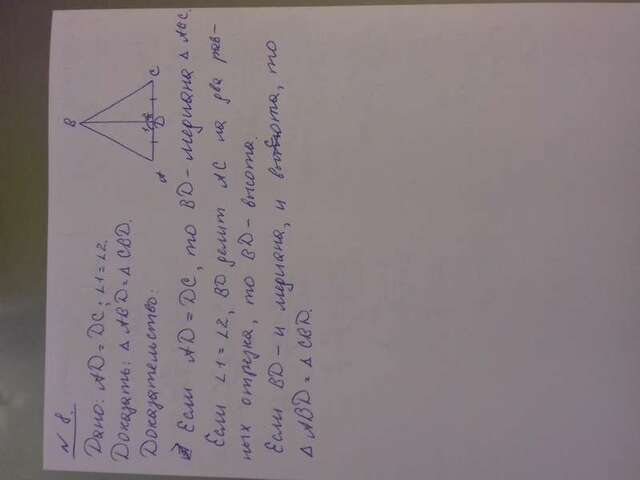 № 8.
Дано: AD = DC; ∠1 = ∠2.
Доказать: △ ABD = △ CBD.
Доказательство:
B
1 2
A D C
Если AD = DC, то BD – медиана △ ABC.
Если ∠1 = ∠2, BD делит AC на два рав-
ных отрезка, то BD – высота.
Если BD – и медиана, и высота, то
△ ABD = △ CBD.